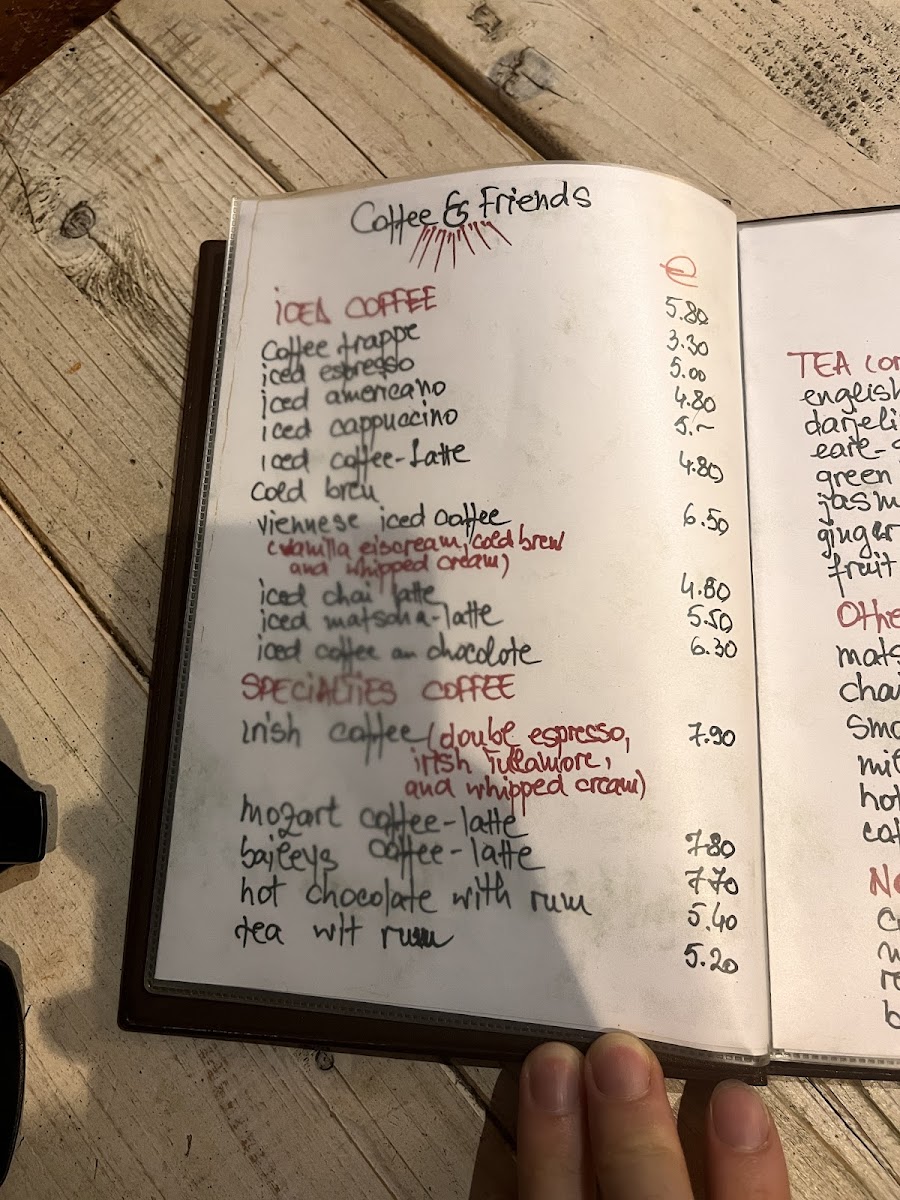 Coffee & Friends
€
ICED COFFEE
coffee frappe 5.80
iced espresso 3.30
iced americano 5.00
iced cappuccino 4.80
iced coffee-latte 5.-
cold brew 4.80
viennese iced coffee 6.50
(vanilla eiscream, cold brew
and whipped cream)
iced chai latte 4.80
iced matscha-latte 5.50
iced coffee an chocolote 6.30
SPECIALTIES COFFEE
irish coffee (doube espresso, 7.90
irish Tullamore,
and whipped cream)
mozart coffee-latte 7.80
baileys coffee-latte 7.70
hot chocolate with rum 5.40
tea wit rum 5.20
TEA
english
green
ginger
fruit